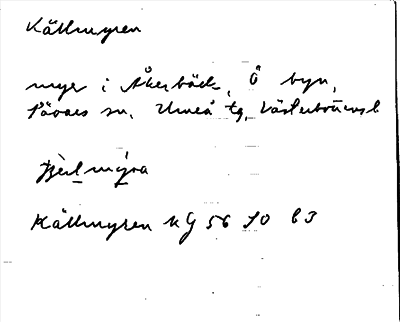 Källmyren
myr i Åkerbäck, Ö byn,
Sävars sn, Umeå tg, Västerbottens l
Källmyren kg 56 f0 b3